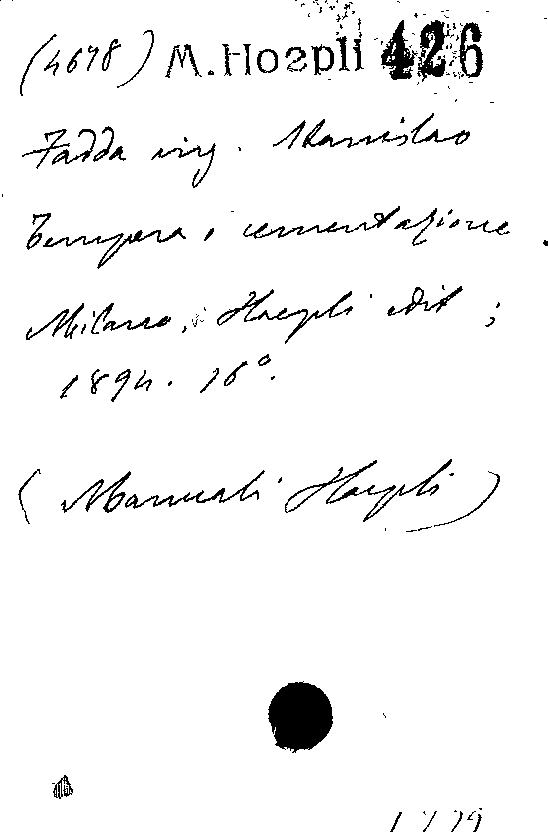 (4678) M. Hoepli 426
Fadda ing. Stanislao
Tempera e cementazione.
Milano, Hoepli edit;
1894. 16°.
(Manuali Hoepli)